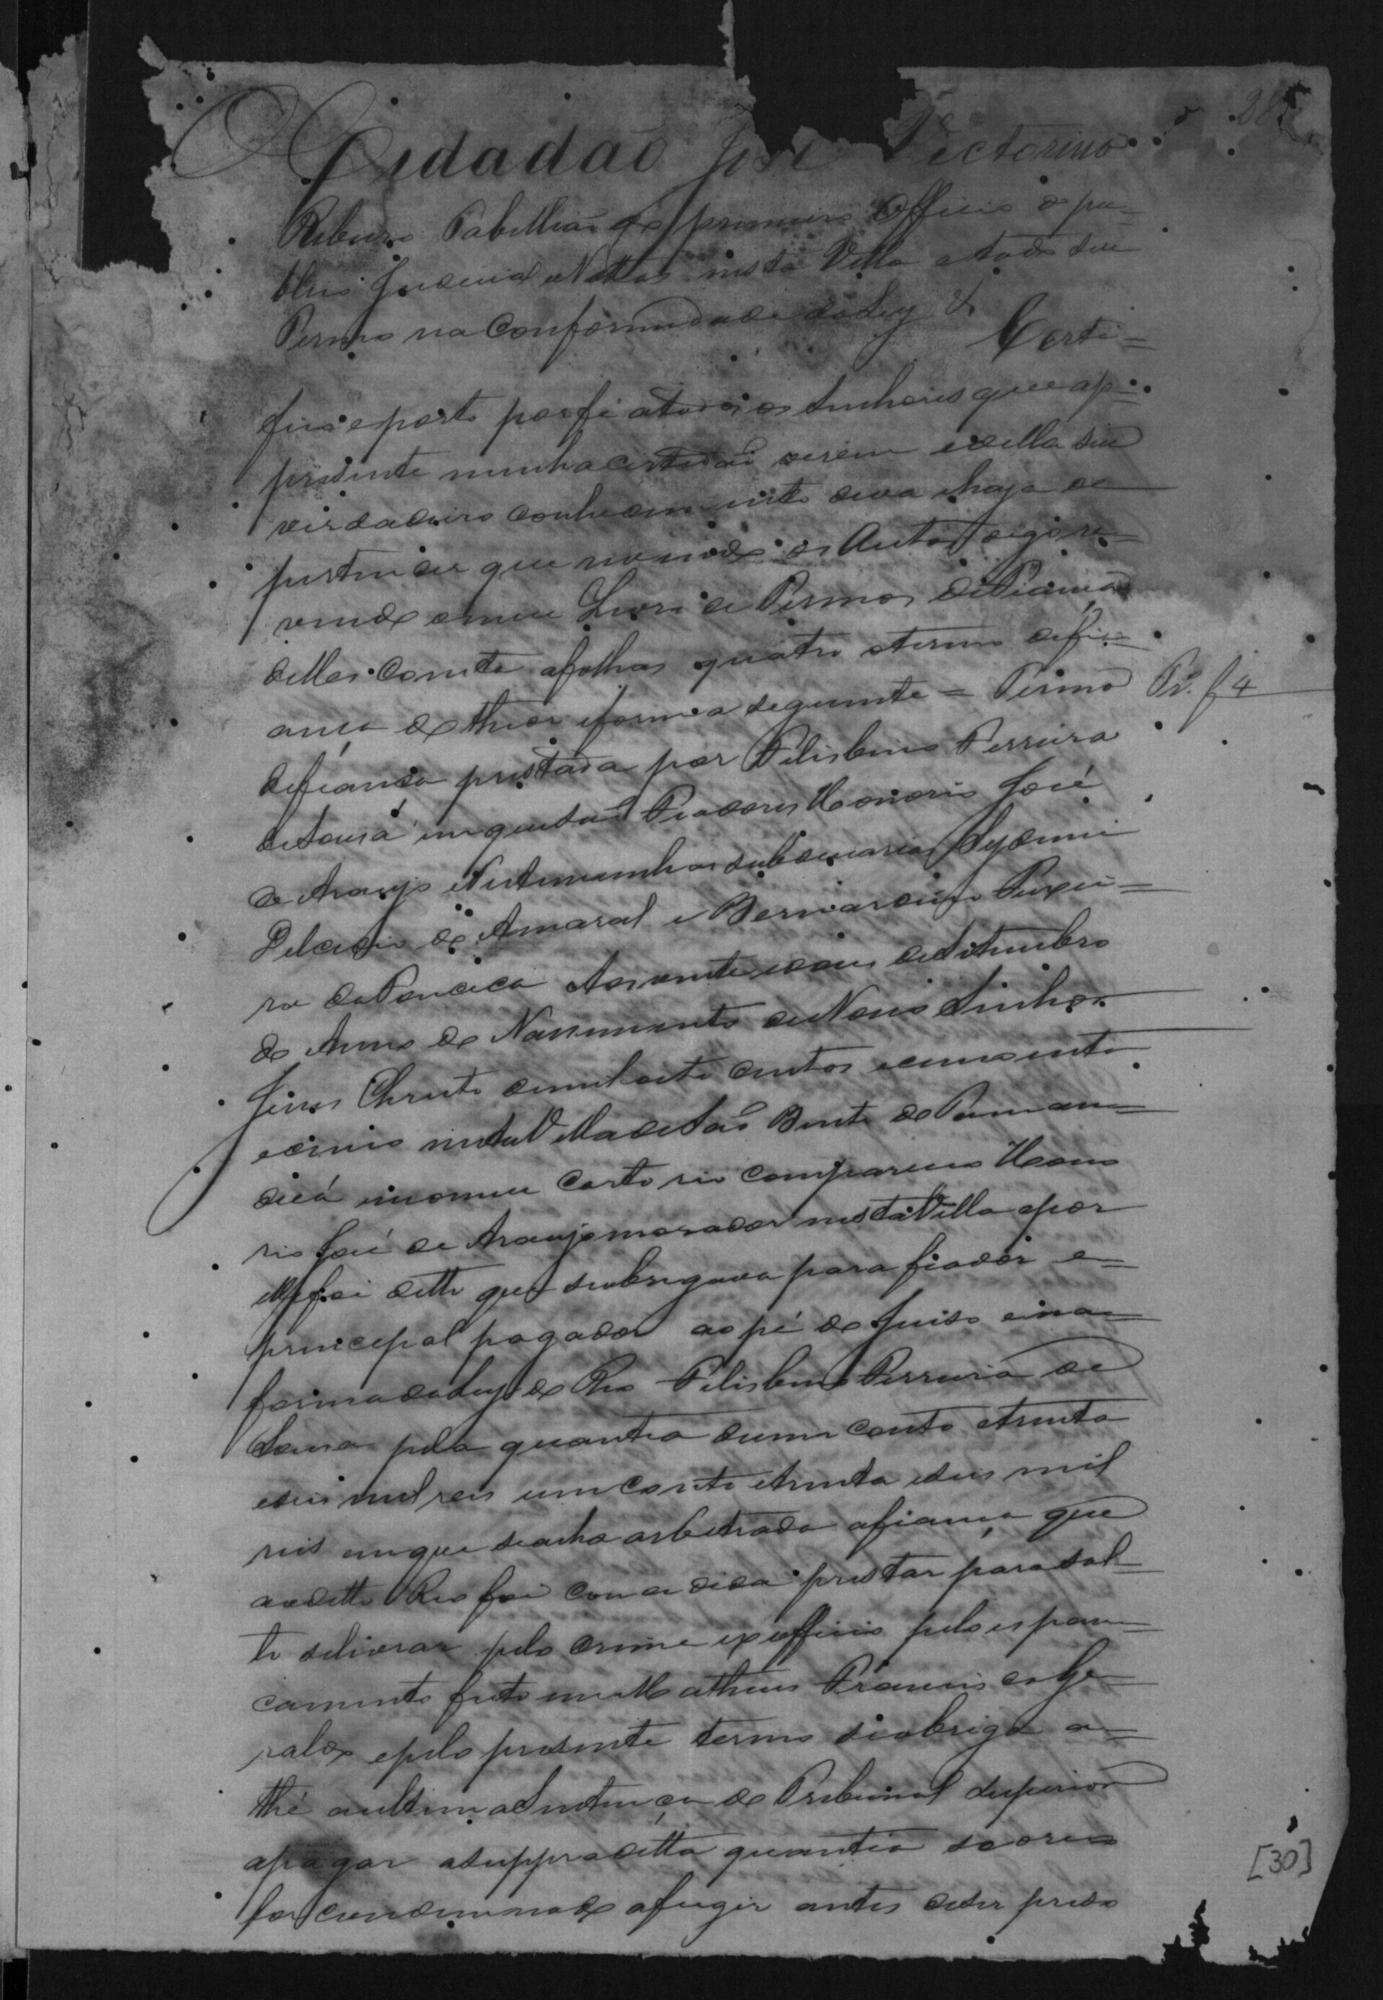 O Cidadão José Victorino
Ribeiro Tabellião do primeiro Officio do pu=
blico Judicial e Nottas nesta Villa e todo seu
Termo na Conformidade da Ley &
Certi=
fico e porto por fé a todos os Senhores que a p=
presente minha certidaõ virem e della seu
verdadeiro conhecimento deva e haja de
pertencer que revendo os Autos digo re=
vendo o meu Livro de Termos de Fiança
delles consta a folhas quatro o termo de fi=
ança do theor e forma seguinte = Termo
Tr. f 4
de fiança prestada por Felisbino Ferreira
de Sousa em que são Fiadores Honorio José
de Araujo e testemunhas
do Amaral e Bernardino Teixei=
ra da Aos vinte e dois de Setembro
do Anno do Nascimento de Nosso Senhor
Jesus Christo de mil oito centos e cincoenta
e cinco nesta Villa de Saõ Bento do Taman=
duá em o meu Cartorio compareceo Hono
rio José de Araujo morador nesta Villa e por
elle foi ditto que se obrigava para fiador e=
principal pagador ao pé do Juiso e na=
forma da Ley do Reo Felisbino Ferreira de
Sousa pela quantia de um conto e trinta
e seis mil reis um conto e trinta e seis mil
reis em que se acha arbitrada a fiança que
ao ditto Reo foi concedida prestar para sol=
to se livrar pelo crime ex officio pelo espan=
camento feito em Matheus Francisco Ge=
raldo e pelo presente termo se obriga a=
thé a ultima Sentença do Tribunal Superior
a pagar a suppraditta quantia se o reo
for condemnado e fugir antes de ser preso
[30]